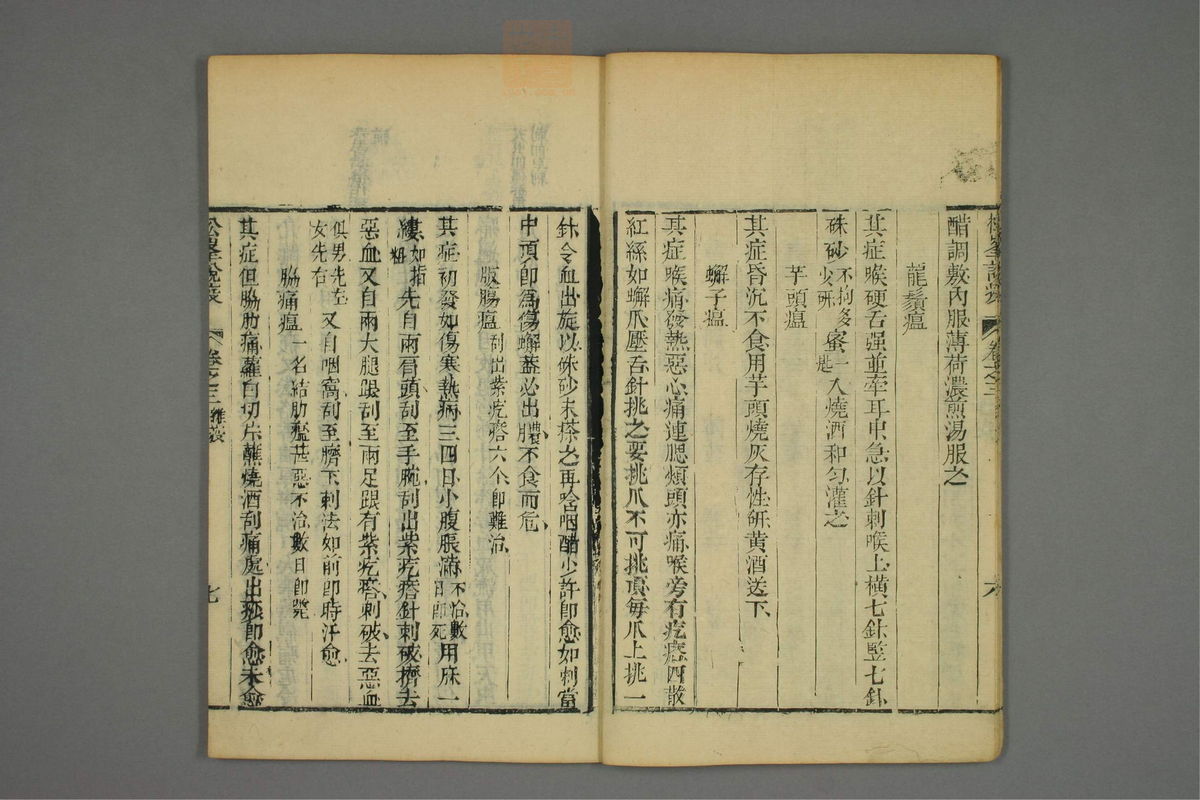 松峯說疫
卷之三
六
醋調敷內服薄荷濃煎湯服之
龍鬚瘟
其症喉硬舌强並牽耳中急以針刺喉上橫七針竪七針
硃砂不拘多少研蜜一匙入燒酒和勻灌之
芋頭瘟
其症昏沉不食用芋頭燒灰存性研黃酒送下
蠏子瘟
其症喉痛發熱惡心痛連腮頰頭亦痛喉旁有疙瘩四散
紅絲如蠏爪壓舌針挑之要挑爪不可挑頂每爪上挑一
針令血出旋以硃砂末搽之再啥咽醋少許即愈如刺當
中頂即為傷蠏蓋必出膿不食而危
版腸瘟刮出紫疙瘩六个即難治
其症初發如傷寒熱病三四日小腹脹滿不治數日即死用麻一
縷如指粗先自兩肩頭刮至手腕刮出紫疙瘩針刺破擠去
惡血又自兩大腿跟刮至兩足跟有紫疙瘩刺破去惡血
俱男先左女先右又自咽窩刮至臍下刺法如前即時汗愈
脇痛瘟一名結肋瘟甚惡不治數日即斃
其症但脇肋痛蘿白切片蘸燒酒刮痛處出痧即愈未愈
松峯說疫
卷之三雜疫
七